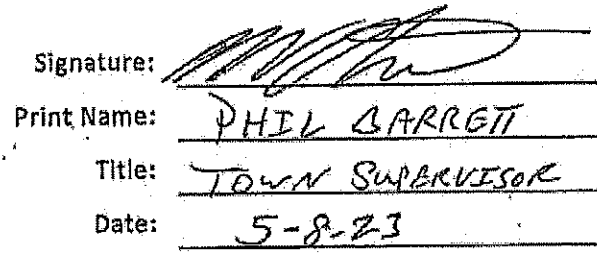 Signature:
Print Name: PHIL BARRETT
Title: TOWN SUPERVISOR
Date: 5-8-23